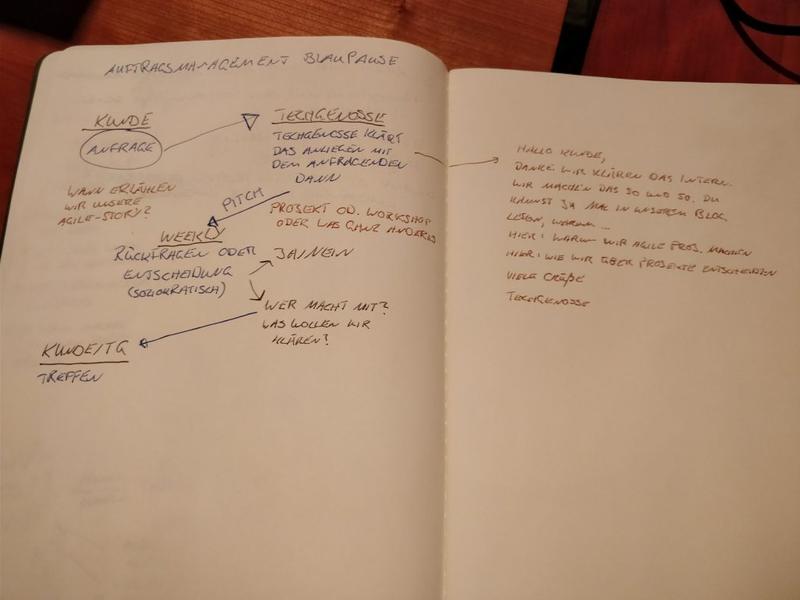 AUFTRAGSMANAGEMENT BLAUPAUSE
KUNDE
ANFRAGE
TECHGENOSSE
TECHGENOSSE KLÄRT
DAS ANLIEGEN MIT
DEM ANFRAGENDEN
DANN
WANN ERZÄHLEN
WIR UNSERE
AGILE-STORY?
PITCH
PROJEKT OD. WORKSHOP
ODER WAS GANZ ANDERES
WEEKLY
RÜCKFRAGEN ODER
ENTSCHEIDUNG
(SOZIOKRATISCH)
JA/NEIN
WER MACHT MIT?
WAS WOLLEN WIR
KLÄREN?
KUNDE/TG
TREFFEN
HALLO KUNDE,
DANKE WIR KLÄREN DAS INTERN.
WIR MACHEN DAS SO UND SO. DU
KANNST JA MAL IN UNSEREM BLOG
LESEN, WARUM ...
HIER: WARUM WIR AGILE PROJ. MACHEN
HIER: WIE WIR ÜBER PROJEKTE ENTSCHEIDEN
VIELE GRÜßE
TECHGENOSSE